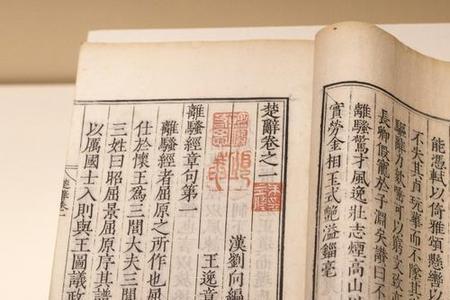 能憑軾以倚雅頌懸轡
不失其貞玩華而不墜其
驅辭力欬唾可以窮文致
長卿假寵於子淵矣贊曰不
離騷驚才風逸壯志煙高山川
實勞金相玉式艷溢錙毫
楚辭卷之一
漢劉向編
王逸章
離騷經章句第一
離騷經者屈原之所作也屈
仕於懷王為三閭大夫三閭
三姓曰昭屈景屈原序其譜
以厲國士入則與王圖議政
楚辭卷一